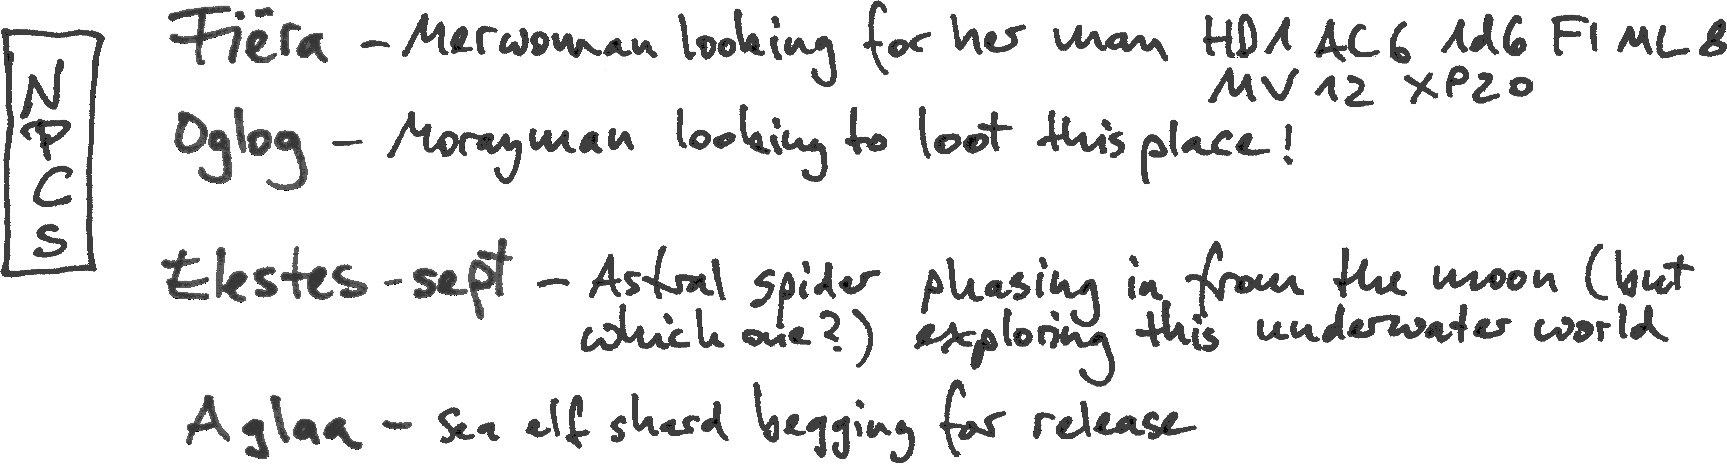 NPCS
Fiëra – Merwoman looking for her man HD1 AC6 1d6 F1 ML8
MV 12 XP20
Oglog – Morayman looking to loot this place!
Elestes-sept – Astral spider phasing in from the moon (but
which one?) exploring this underwater world
Aglaa – sea elf shard begging for release